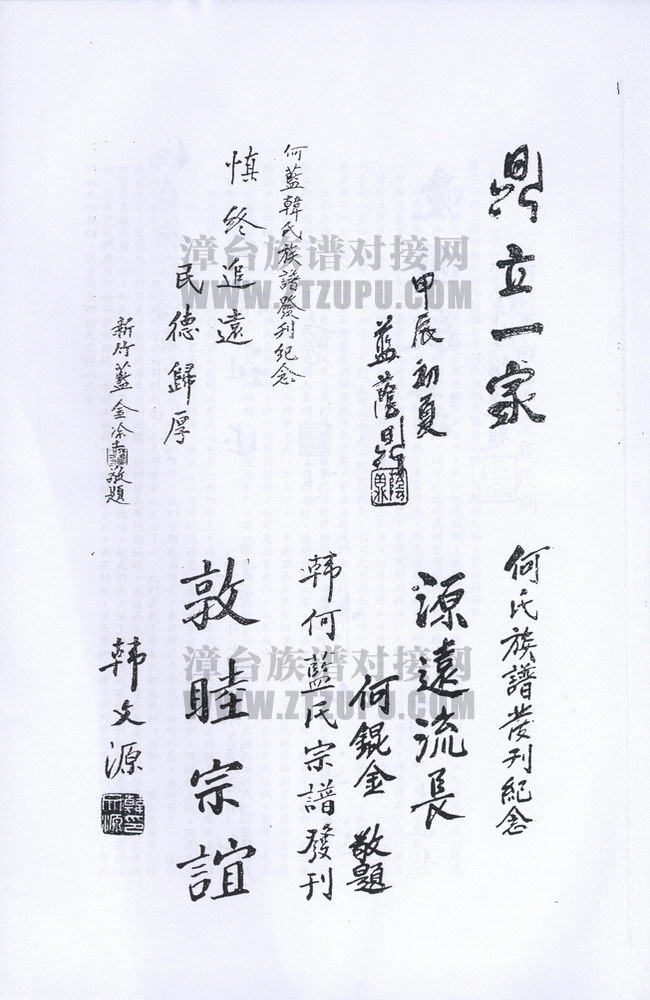 鼎立一家
甲辰初夏
藍蔭鼎
蔭鼎
何藍韓氏族譜發刊紀念
慎終追遠
民德歸厚
新竹藍金
敬題
何氏族譜發刊紀念
源遠流長
何錕金 敬題
韓何藍氏宗譜發刊
敦睦宗誼
韓文源
漳台族谱对接网
WWW.ZTZUPU.COM
漳台族谱对接网
WWW.ZTZUPU.COM